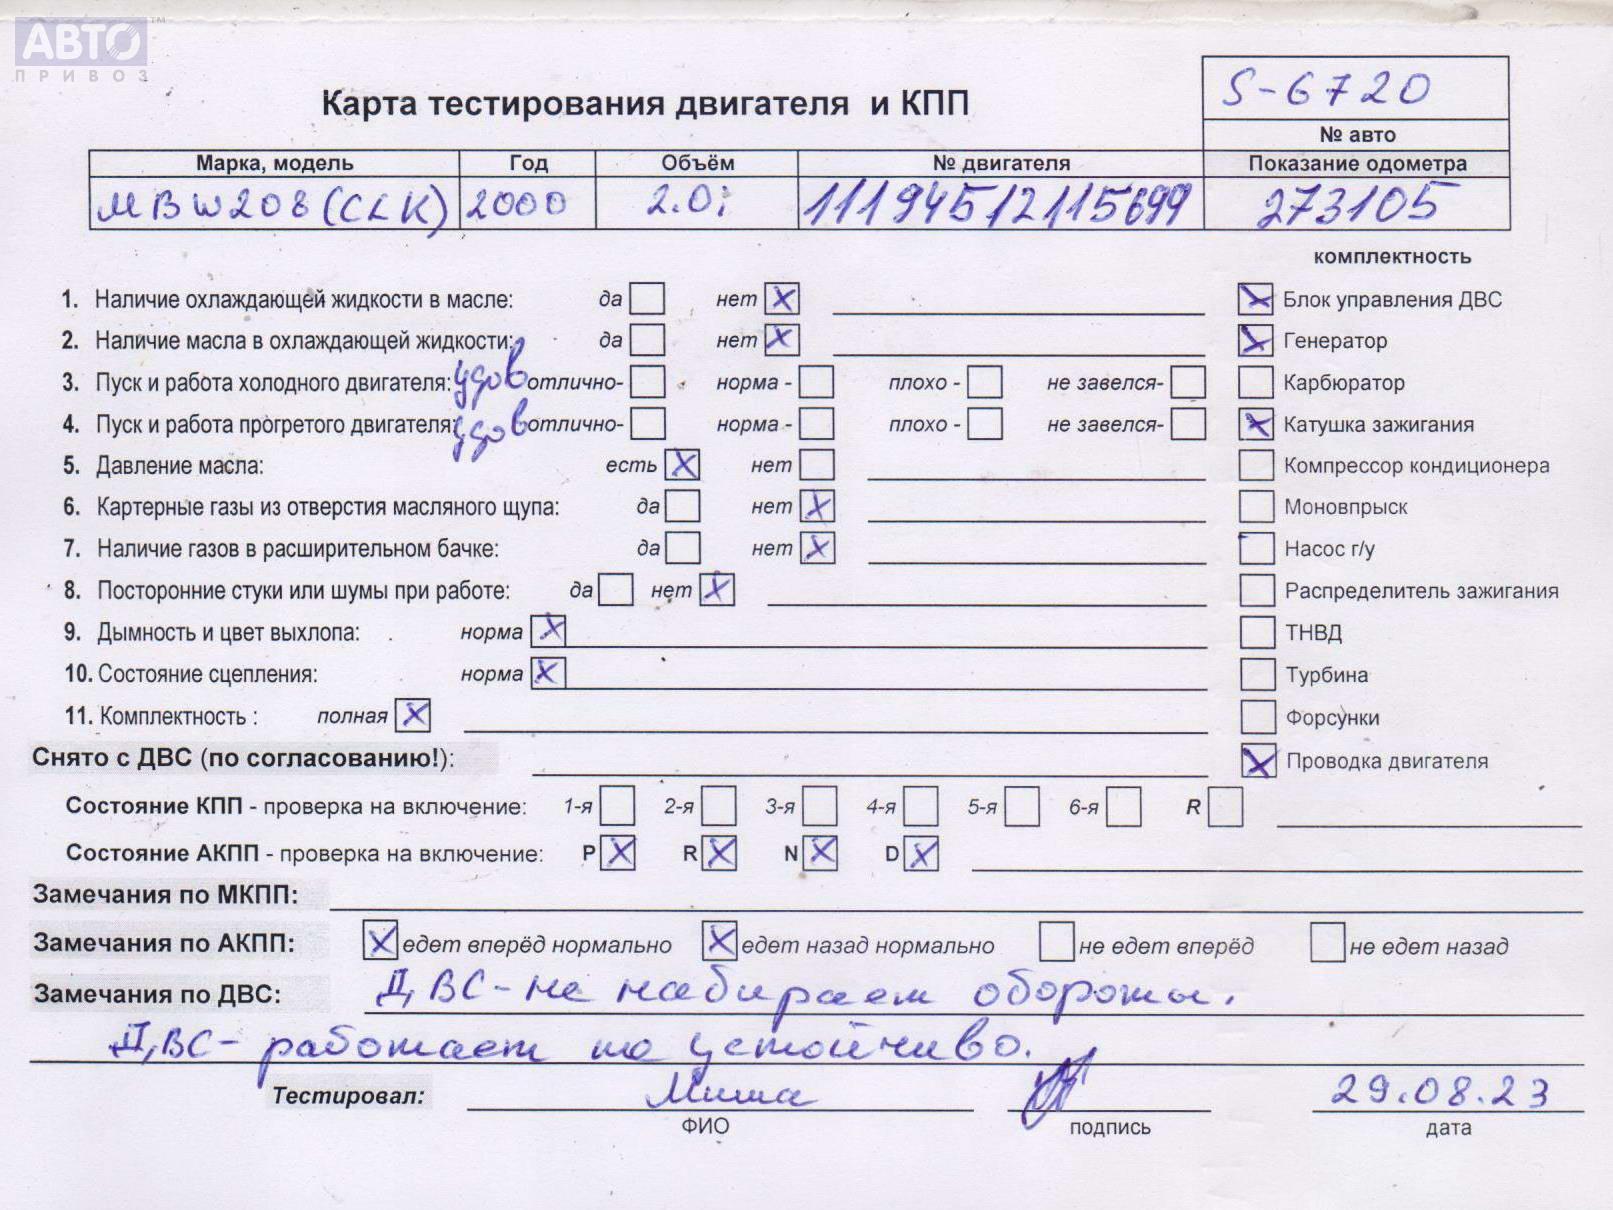 АВТО™
ПРИВОЗ
S-6720
Карта тестирования двигателя и КПП
№ авто
Марка, модель Год Объём № двигателя Показание одометра
MB W208 (CLK) 2000 2.0i 11194512115699 273105
комплектность
1. Наличие охлаждающей жидкости в масле: да нет X Блок управления ДВС
2. Наличие масла в охлаждающей жидкости: да нет X Генератор
3. Пуск и работа холодного двигателя: удов отлично- норма - плохо - не завелся- Карбюратор
4. Пуск и работа прогретого двигателя: удов отлично- норма - плохо - не завелся- Катушка зажигания
5. Давление масла: есть X нет Компрессор кондиционера
6. Картерные газы из отверстия масляного щупа: да нет X Моновпрыск
7. Наличие газов в расширительном бачке: да нет X Насос г/у
8. Посторонние стуки или шумы при работе: да нет X Распределитель зажигания
9. Дымность и цвет выхлопа: норма X ТНВД
10. Состояние сцепления: норма X Турбина
11. Комплектность : полная X Форсунки
Снято с ДВС (по согласованию!): Проводка двигателя
Состояние КПП - проверка на включение: 1-я 2-я 3-я 4-я 5-я 6-я R
Состояние АКПП - проверка на включение: P X R X N X D X
Замечания по МКПП:
Замечания по АКПП: X едет вперёд нормально X едет назад нормально не едет вперёд не едет назад
Замечания по ДВС: ДВС - не набирает обороты.
ДВС - работает не устойчиво.
Тестировал: Миша 29.08.23
ФИО подпись дата